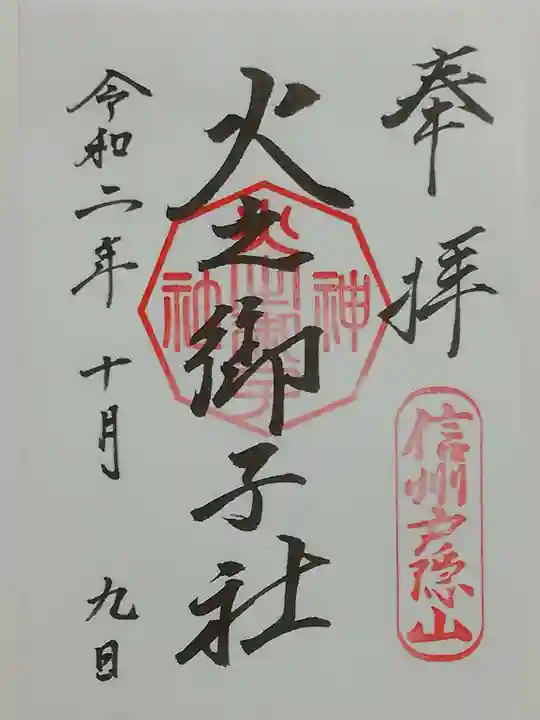 奉拝
信州戸隠山
火之御子社
神
社
令和二年十月九日